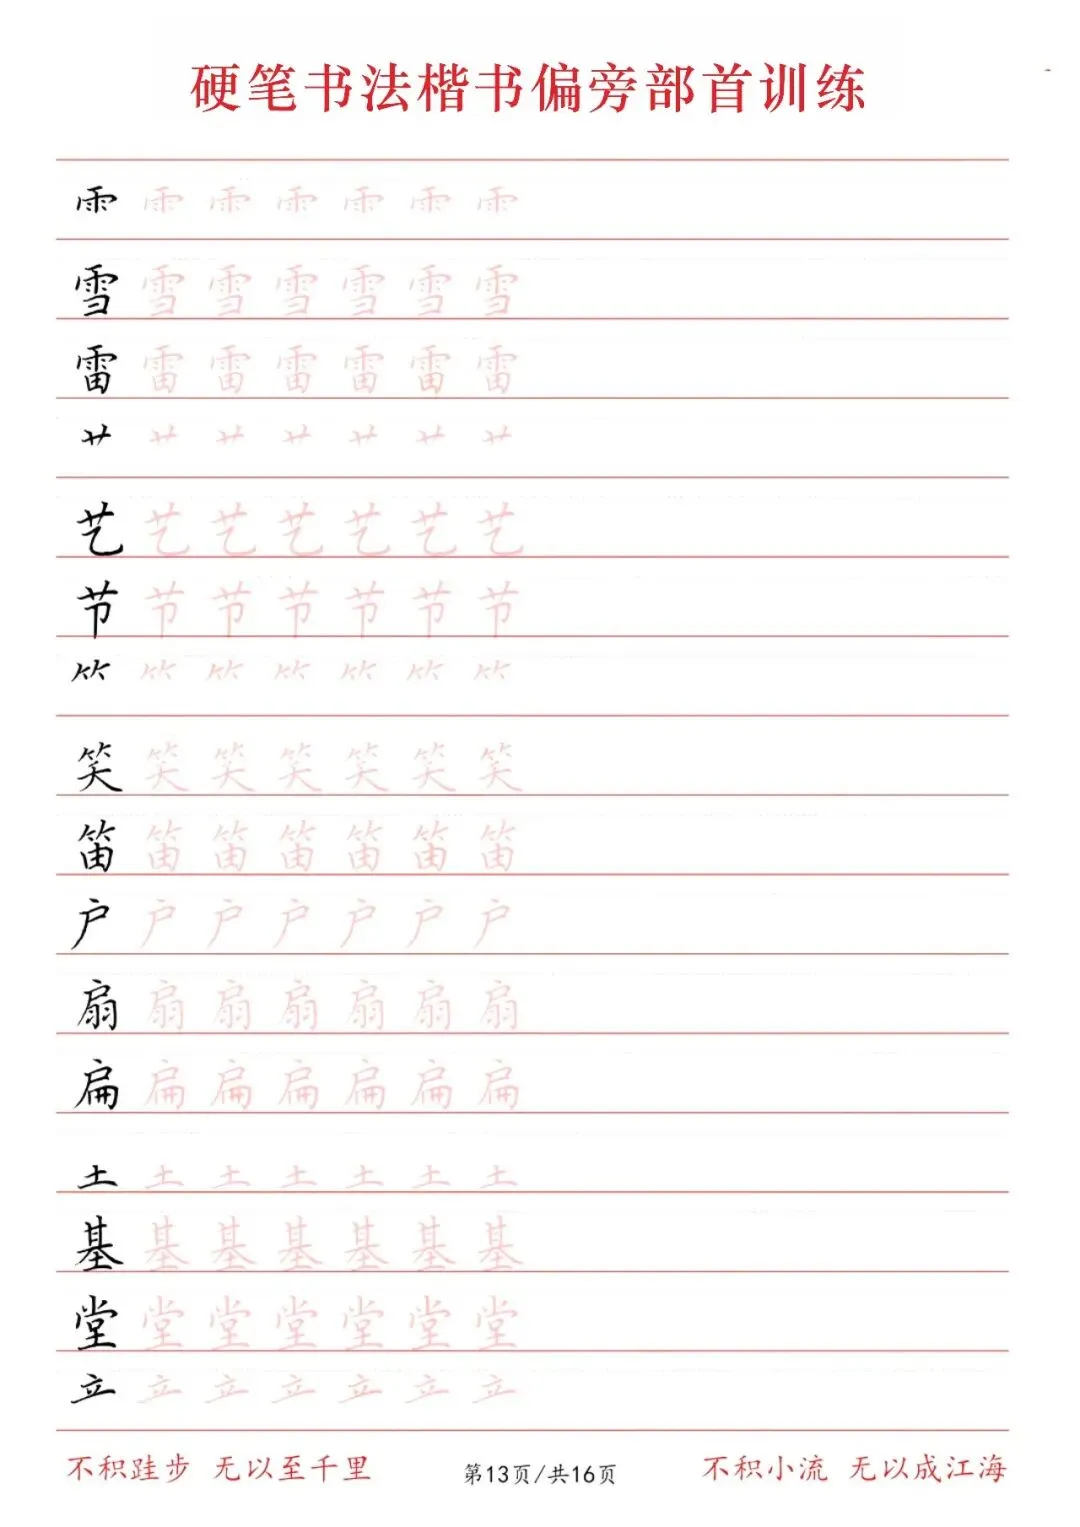 硬笔书法楷书偏旁部首训练
⻗ ⻗ ⻗ ⻗ ⻗ ⻗ ⻗
雪 雪 雪 雪 雪 雪 雪
雷 雷 雷 雷 雷 雷 雷
艹 艹 艹 艹 艹 艹 艹
艺 艺 艺 艺 艺 艺 艺
节 节 节 节 节 节 节
⺮ ⺮ ⺮ ⺮ ⺮ ⺮ ⺮
笑 笑 笑 笑 笑 笑 笑
笛 笛 笛 笛 笛 笛 笛
户 户 户 户 户 户 户
扇 扇 扇 扇 扇 扇 扇
扁 扁 扁 扁 扁 扁 扁
土 土 土 土 土 土 土
基 基 基 基 基 基 基
堂 堂 堂 堂 堂 堂 堂
立 立 立 立 立 立 立
不积跬步 无以至千里 第13页/共16页 不积小流 无以成江海